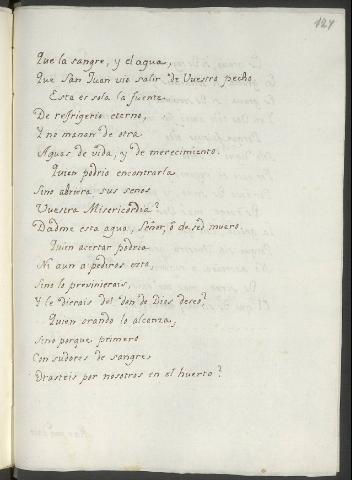 127
Que la sangre, y el agua,
Que San Juan vio salir de Vuestro pecho.
Esta es sola la fuente
De refrigerio eterno,
Y no manan de otra
Aguas de vida, y de merecimiento.
Quien podria encontrarla
Sino abriera sus senos
Vuestra Misericordia?
Dadme esta agua, Señor, ó de sed muero
Quien acertar podria
Ni aun a pediros esta,
Sino lo previnierais,
Y le dierais del don de Dios deseo?
Quien orando lo alcanza,
Sino porque primero
Con sudores de sangre
Orasteis por nosotros en el huerto?